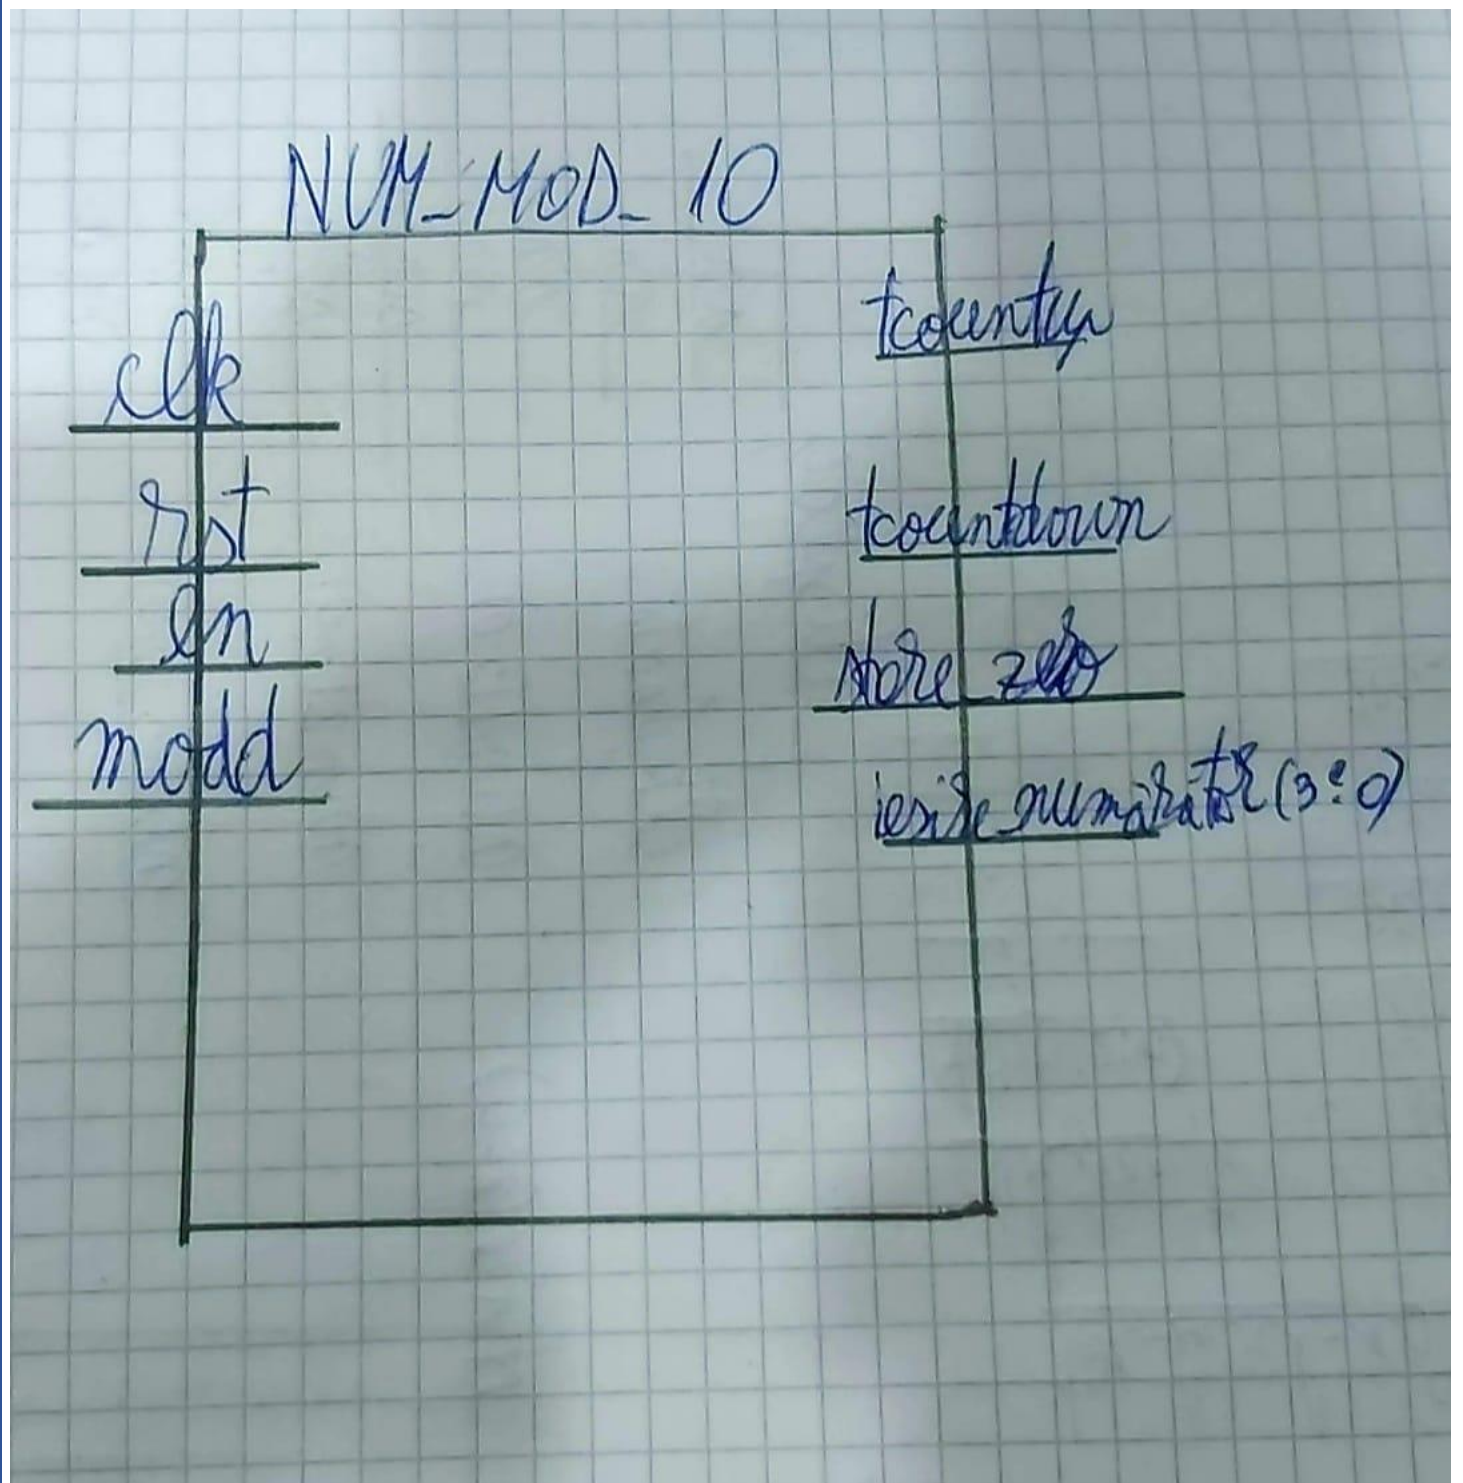 NUM_MOD_10
clk
rst
en
modd
tcountup
tcountdown
store_zero
iesire numărător (3:0)